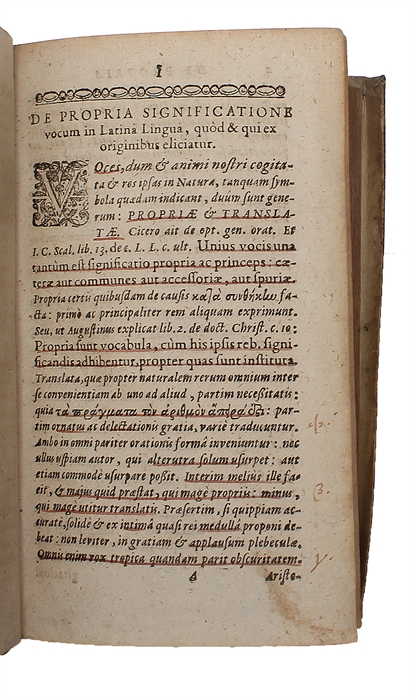 I
DE PROPRIA SIGNIFICATIONE
vocum in Latina Lingua, quòd & qui ex
originibus eliciatur.
VOces, dum & animi nostri cogita-
ta & res ipsas in Natura, tanquam sym-
bola quædam indicant, duum sunt gene-
rum: PROPRIÆ & TRANSLA-
TÆ. Cicero ait de opt. gen. orat. Et
I. C. Scal. lib. 13. de c. L. L. c. ult. Unius vocis una
tantùm est significatio propria ac princeps: cæ-
teræ aut communes aut accessoriæ, aut spuriæ.
Propria certis quibusdam de causis συνθήκην fa-
cta: primò ac principaliter rem aliquam exprimunt.
Seu, ut Augustinus explicat lib. 2. de doct. Christ. c. 10:
Propria sunt vocabula, cùm his ipsis reb. signi-
ficandis adhibentur, propter quas sunt instituta.
Translata, quæ propter naturalem rerum omnium inter
se convenientiam ab uno ad aliud, partim necessitatis:
quia τὰ πράγματα τὸν ἀριθμὸν ἄπειρά ἐστι: par-
tim ornatus ac delectationis gratia, variè traducuntur.
Ambo in omni pariter orationis formâ inveniuntur: nec
ullus uspiam autor, qui alterutra solum usurpet: aut
etiam commodè usurpare possit. Interim melius ille fa-
cit, & majus quid præstat, qui magè propriis: minus,
qui magè utitur translatis. Præsertim, si quippiam ac-
curatè, solidè & ex intimâ quasi rei medullâ proponi de-
beat: non leviter, in gratiam & applausum plebeculæ.
Omnis enim vox tropica quandam parit obscuritatem.
A Ariste-